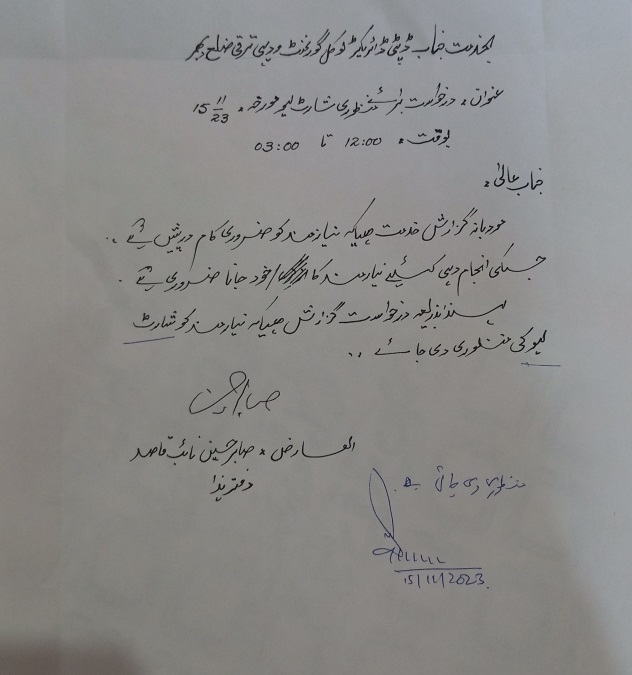 بخدمت جناب ڈپٹی ڈائریکٹر لوکل گورنمنٹ و دیہی ترقی ضلع
عنوان: درخواست برائے منظوری شارٹ لیو مورخہ: 15 11/23
بوقت: 12:00 تا 03:00
جناب عالی:
مودبانہ گزارش خدمت ہیکہ نیازمند کو ضروری کام درپیش ہے ..
جسکی انجام دہی کیلئے نیازمند کا خود جانا ضروری ہے .
لہذا بذریعہ درخواست گزارش ہیکہ نیازمند کو شارٹ
لیو کی منظوری دی جائے ..
العارض: صابر حسین نائب قاصد
دفتر ہذا
منظوری دی جاتی ہے.
15/11/2023.